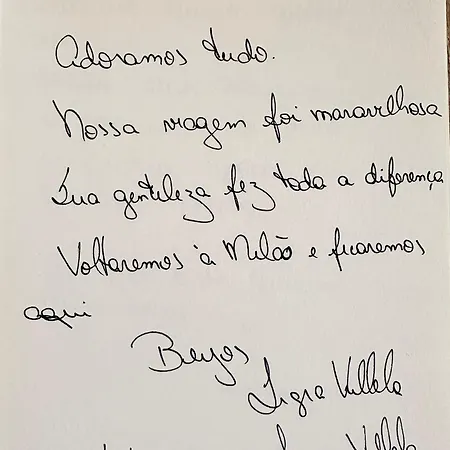 Adoramos tudo.
Nossa viagem foi maravilhosa
Sua gentileza fez toda a diferença
Voltaremos à Milão e ficaremos
aqui
Beijos
Ligia Villela
Villela